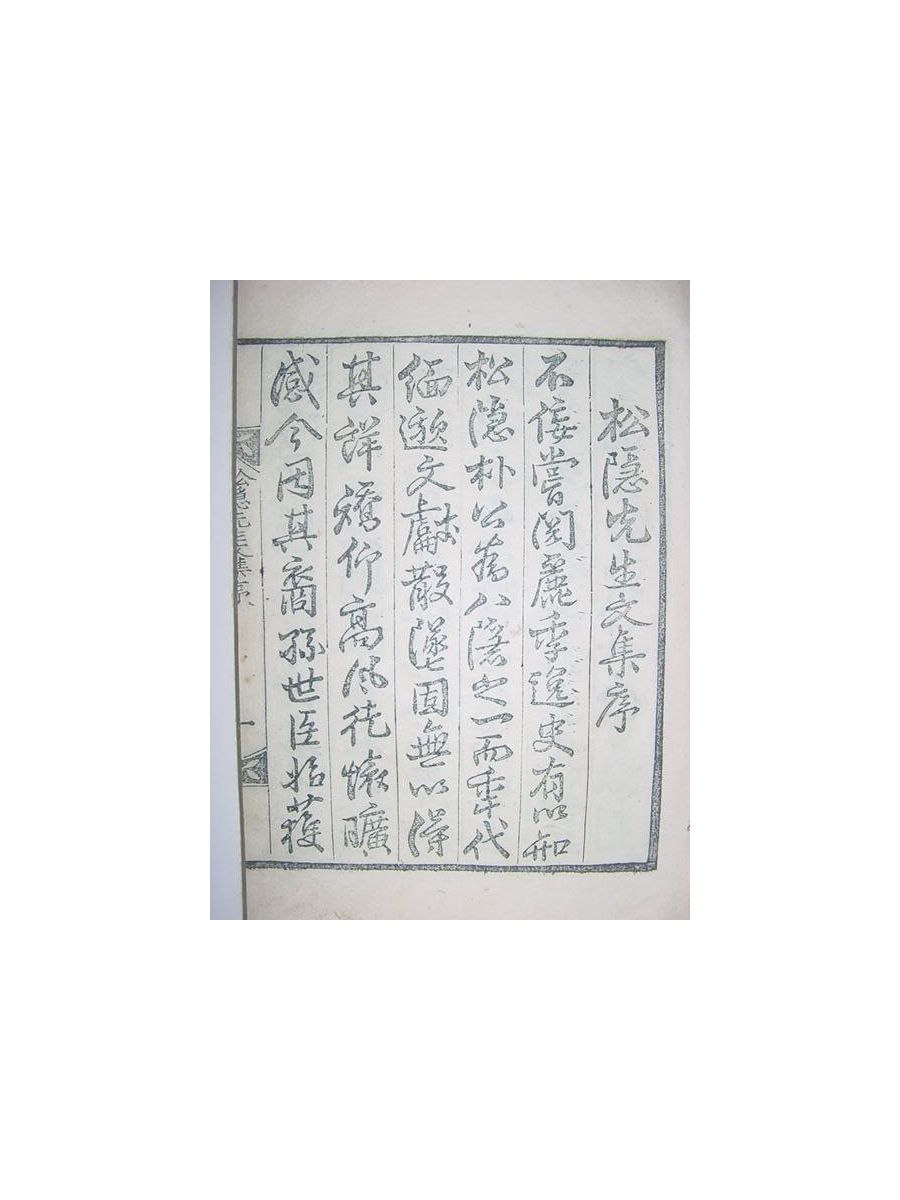 松隱先生文集序
不佞嘗閱麗季逸史有以知
松隱朴公爲八隱之一而年代
緬邈文獻散墜固無以得
其詳矯仰高風徒懷曠
感今因其裔孫世臣始獲
松隱先生文集序 一